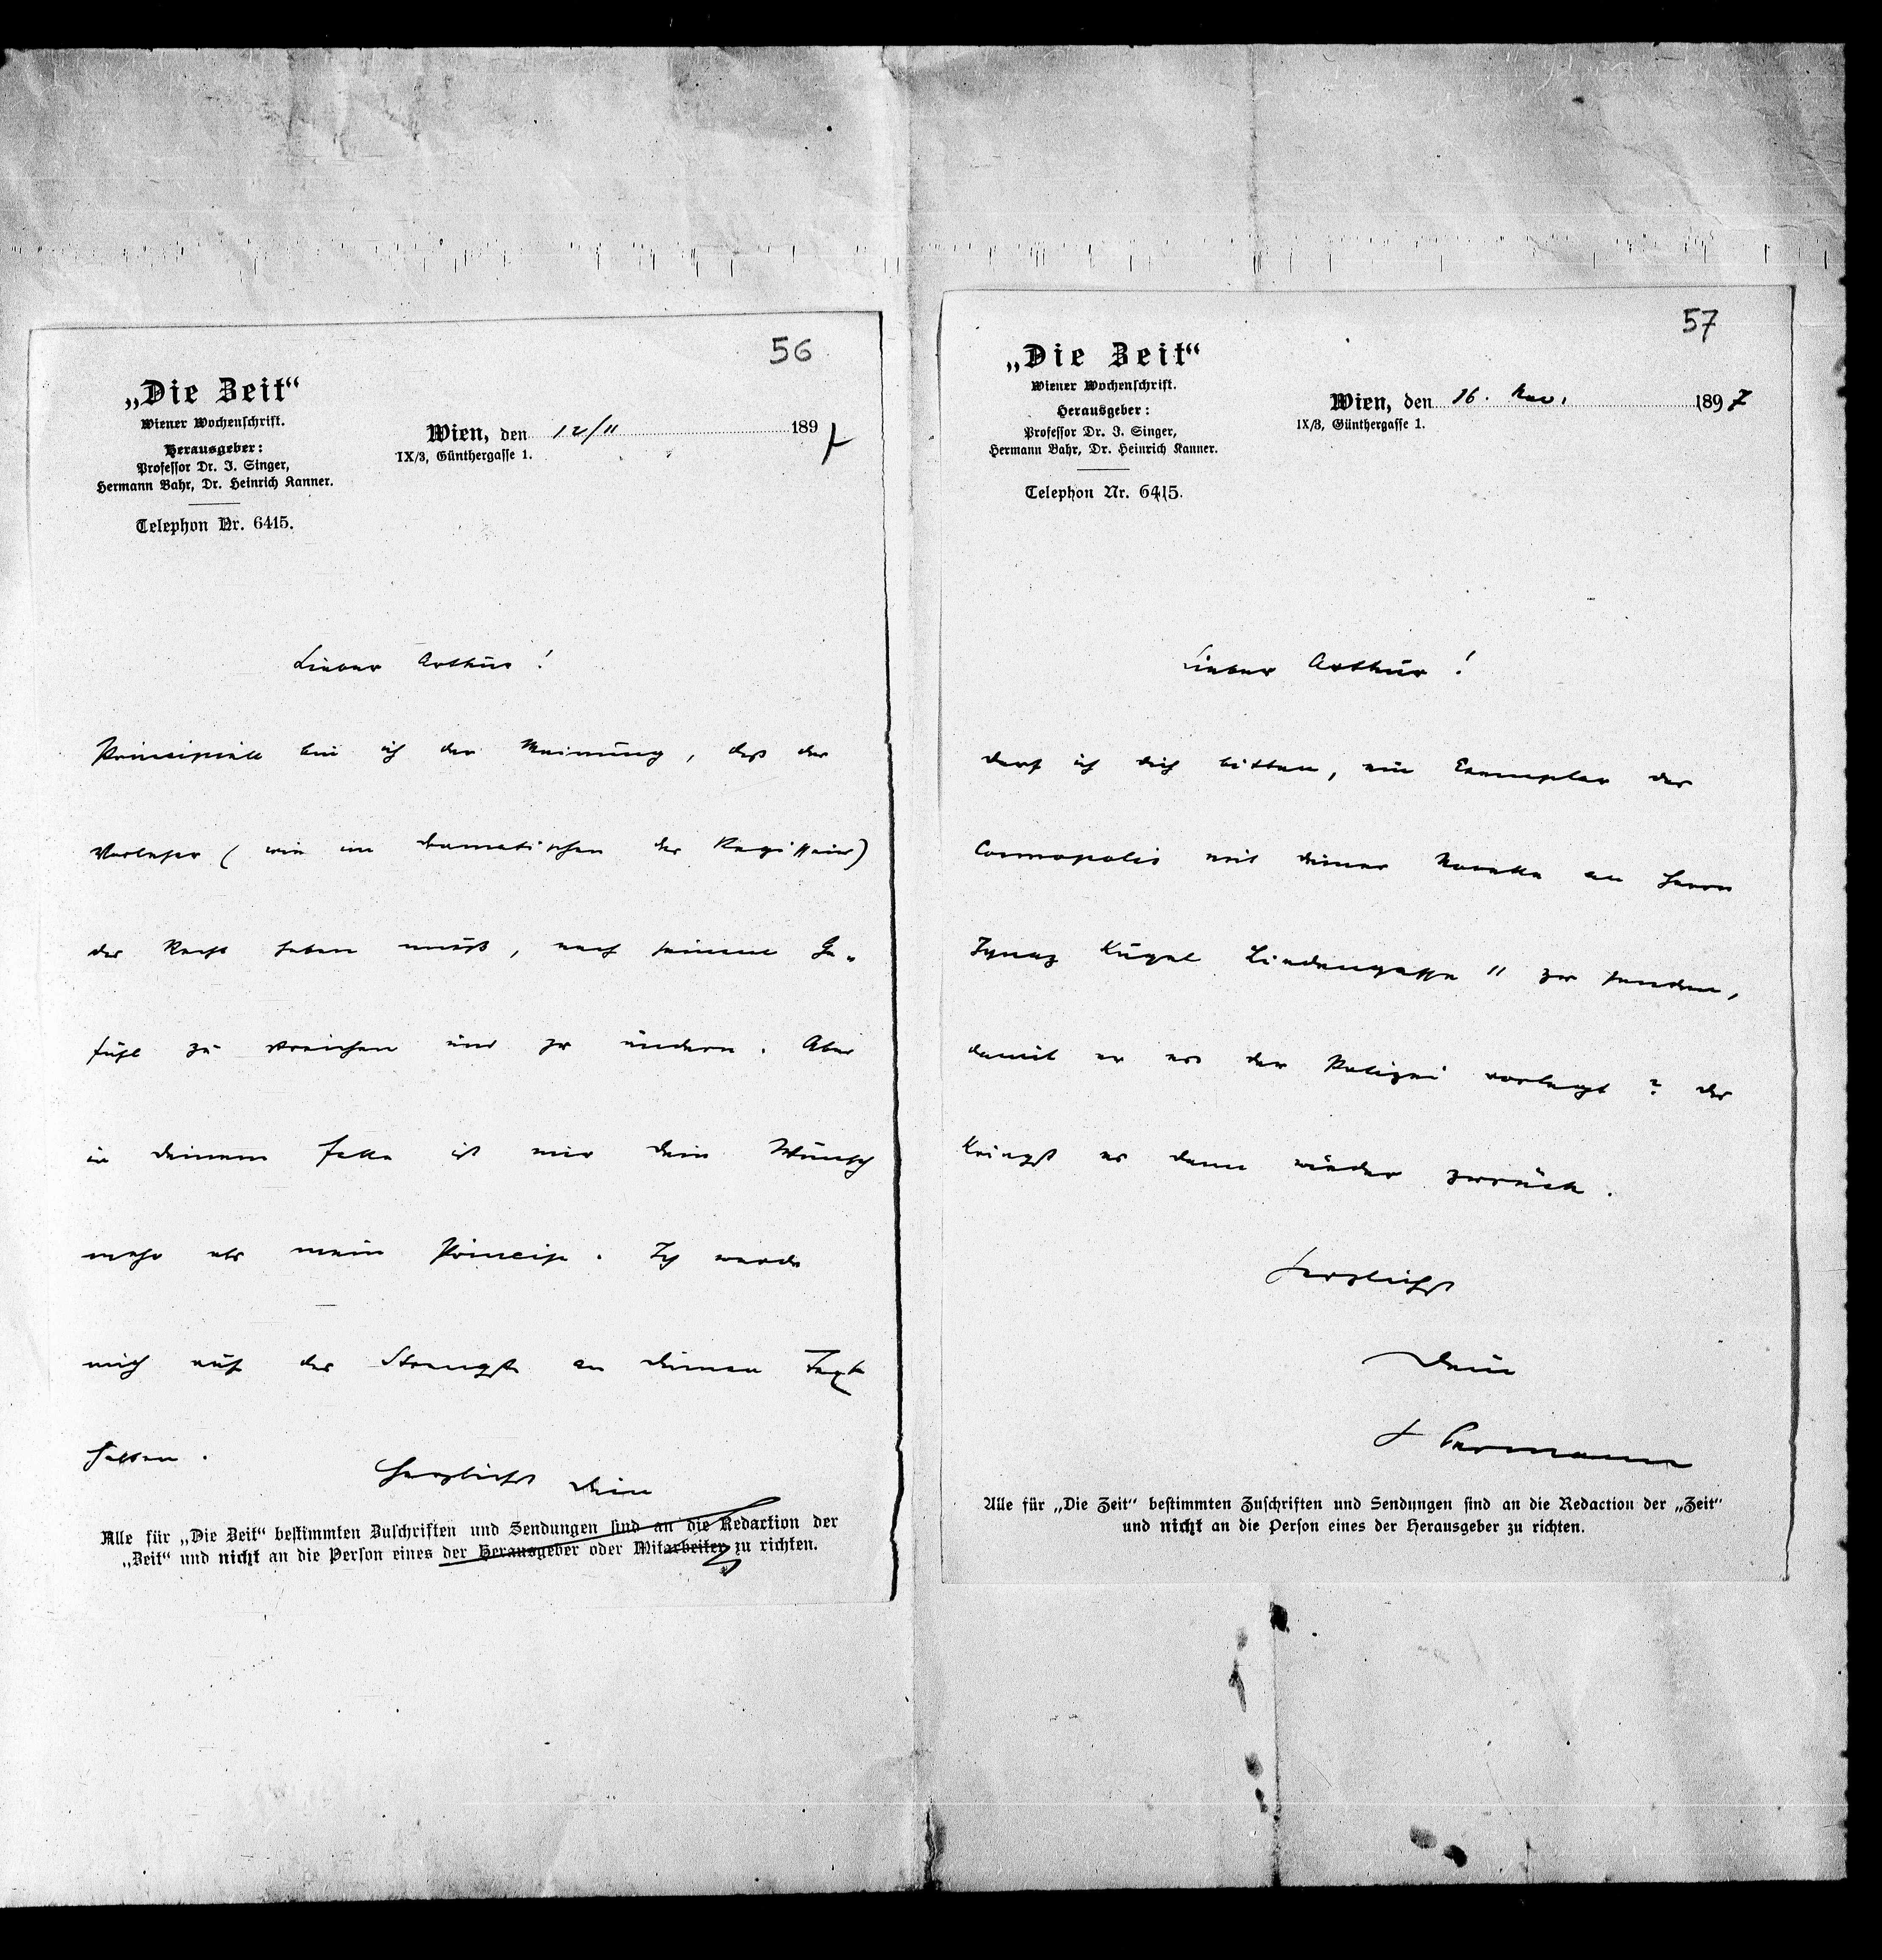 56
„Die Zeit“
Wiener Wochenschrift.
Herausgeber:
Professor Dr. J. Singer,
Hermann Bahr, Dr. Heinrich Kanner.
Telephon Nr. 6415.
Wien, den 12/11 1897
IX/3, Günthergasse 1.
Lieber Arthur!
Principiell bin ich der Meinung, daß der
Vorleser (wie im dramatischen der Regisseur)
das Recht haben muß, nach seinem Ge-
fühl zu streichen und zu ändern. Aber
in deinem Falle ist mir dein Wunsch
mehr als mein Princip. Ich werde
mich auf das Strengste an deinen Text
halten.
Herzlichst Dein
Alle für „Die Zeit“ bestimmten Zuschriften und Sendungen sind an die Redaction der
„Zeit“ und nicht an die Person eines der Herausgeber oder Mitarbeiter zu richten.
57
„Die Zeit“
Wiener Wochenschrift.
Herausgeber:
Professor Dr. J. Singer,
Hermann Bahr, Dr. Heinrich Kanner.
Telephon Nr. 6415.
Wien, den 16. Nov. 1897
IX/3, Günthergasse 1.
Lieber Arthur!
darf ich dich bitten, ein Exemplar der
Cosmopolis mit deiner Novelle an Herrn
Ignaz Kugel Lindengasse 11 zu senden,
damit er es der Polizei vorlegt? du
kriegst es dann wieder zurück.
Herzlichst
Dein
Hermann
Alle für „Die Zeit“ bestimmten Zuschriften und Sendungen sind an die Redaction der „Zeit“
und nicht an die Person eines der Herausgeber zu richten.